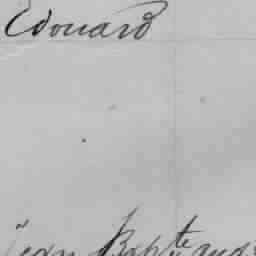 Edouard
Jean Bapte